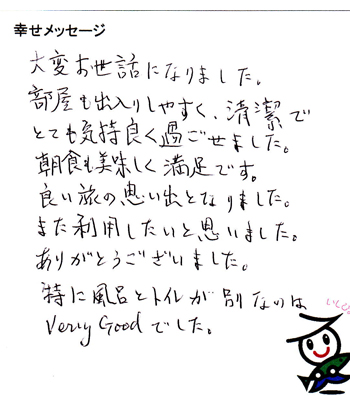 幸せメッセージ
大変お世話になりました。
部屋も出入りしやすく、清潔で
とても気持良く過ごせました。
朝食も美味しく満足です。
良い旅の思い出となりました。
また利用したいと思いました。
ありがとうございました。
特に風呂とトイレが別なのは
Very Goodでした。